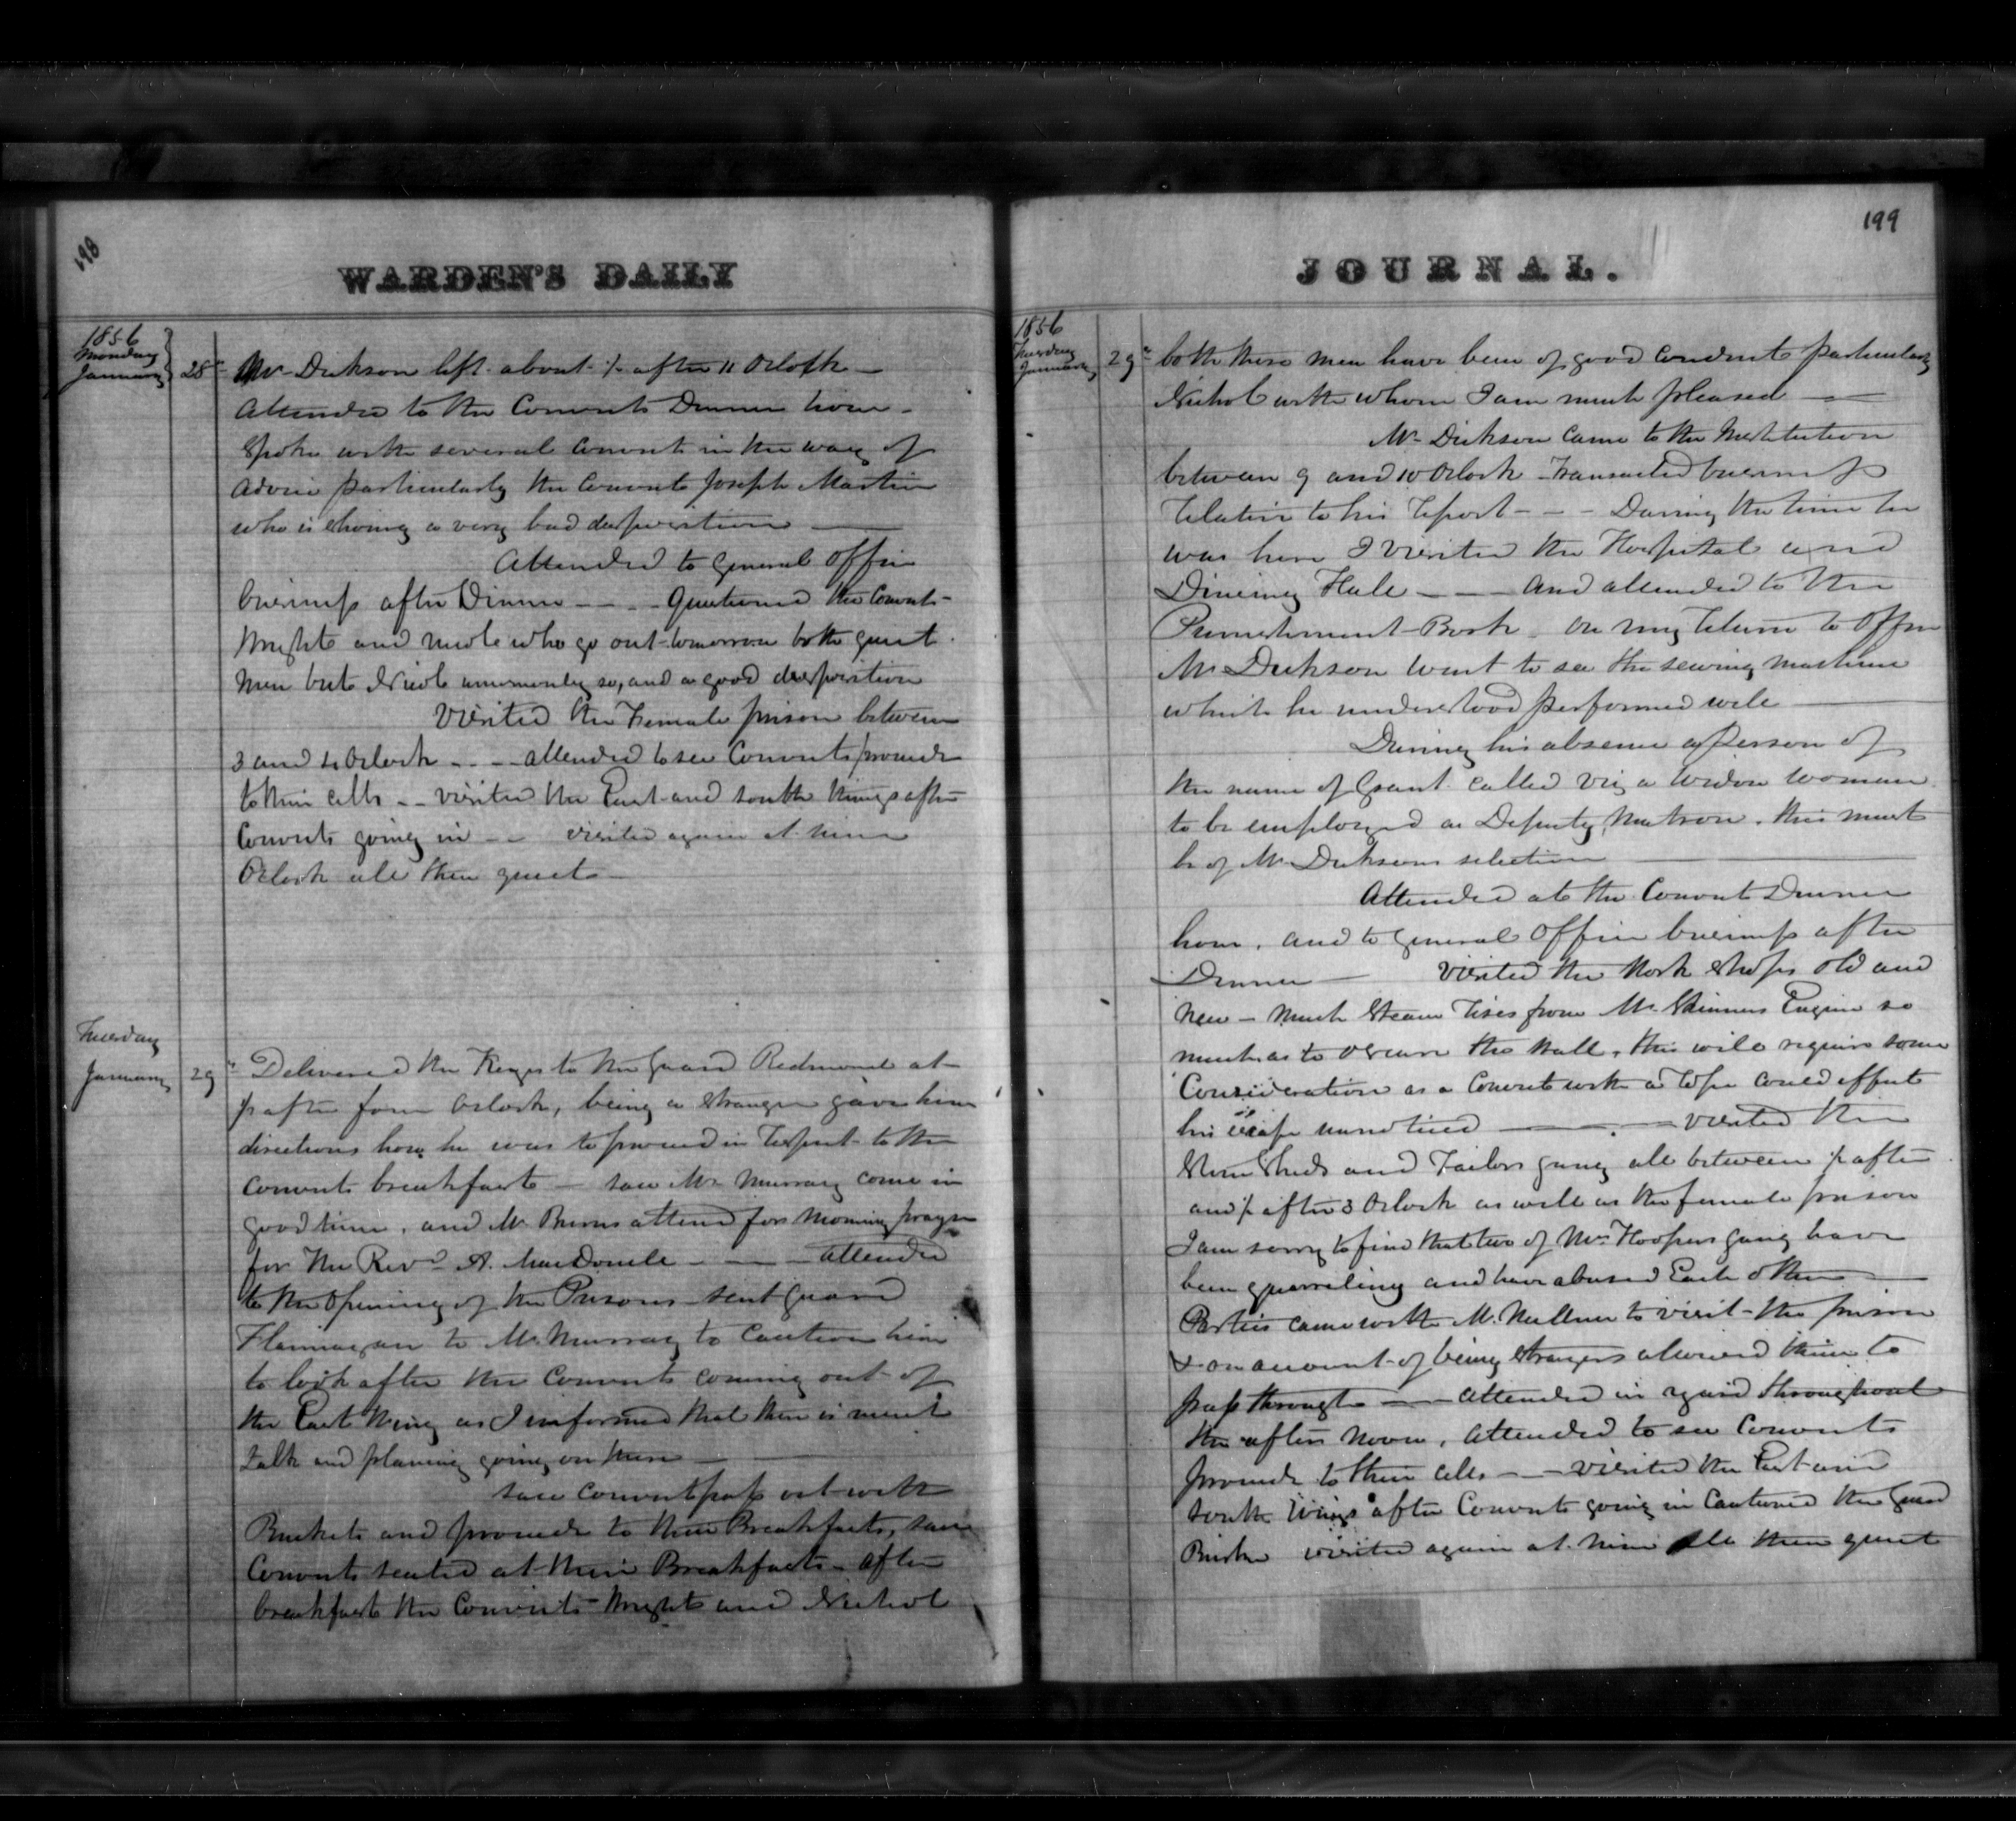 198
WARDEN'S DAILY
1856
Monday
January 28" Mr Dickson left about ½ after 11 Oclock —
Attended to the Convicts Dinner hour —
Spoke with several Convicts in the way of
advice particularly the Convict Joseph Martin
who is shoing a very bad desposition —
Attended to General Office
business after Dinner — — Questioned the Convicts
Wright and Nicol who go out tomorrow both quiet
men but Nicol uncommonly so, and a good desposition
Visited the Female prison between
3 and 4 Oclock — — attended to see Convicts proceede
to their cells — visited the East and South Wings after
Convicts going in — visited again at nine
Oclock all then quiet —
Tuesday
January 29" Delivered the Keys to the Guard Redmond at
½ after four Oclock, being a stranger gave him
directions how he was to proceed in respect to the
Convicts breakfast — saw Mr Murray come in
good time, and Mr Burns attend for Morning prayer
for the Revd A. MacDonell — — attended
to the Opening of the Prisons sent Guard
Flannagan to Mr Murray to Caution him
to look after the Convicts coming out of
the East Wing as I informed that there is much
talk and planing going on there —
saw Convicts pass out with
Buckets and proceede to their Breakfasts, saw
Convicts seated at their Breakfasts — after
breakfast the Convicts Wright and Nichol
199
JOURNAL.
1856
Tuesday
January 29" both these men have been of good Conduct particularly
Nichol with whom I am much pleased —
Mr Dickson came to the Institution
between 9 and 10 Oclock transacted business
relative to his report — — During the time he
was here I visited the Hospital and
Dineing Hall — — and attended to the
Punishment Book. On my return to Office
Mr Dickson went to see the sewing machine
which he understood performed well —
During his absence a person of
the name of Grant called viz a widow woman
to be employed as Deputy Matron. this must
be of Mr Dicksons selection
Attended at the Convict Dinner
hour, and to General Office business after
Dinner — Visited the Work Shops old and
new — much Steam rises from Mr Skinners Engine so
much as to obscure the Wall, this will require some
Consideration as a Convict with a rope could effect
his escape unnoticed — visited the
Stone Sheds and Tailors gang all between ½ after
and ½ after 3 Oclock as well as the female prison
I am sorry to find that two of Mr Hoopers gang have
been quarreling and have abused Each other —
Parties came with Mr to visit the prison
& on account of being strangers allowed them to
pass through — attended in yard throughout
the after noon, attended to see Convicts
proceede to their cells — visited the East and
South Wings after Convicts going in Cautioned the Guard
visited again at nine all then quiet